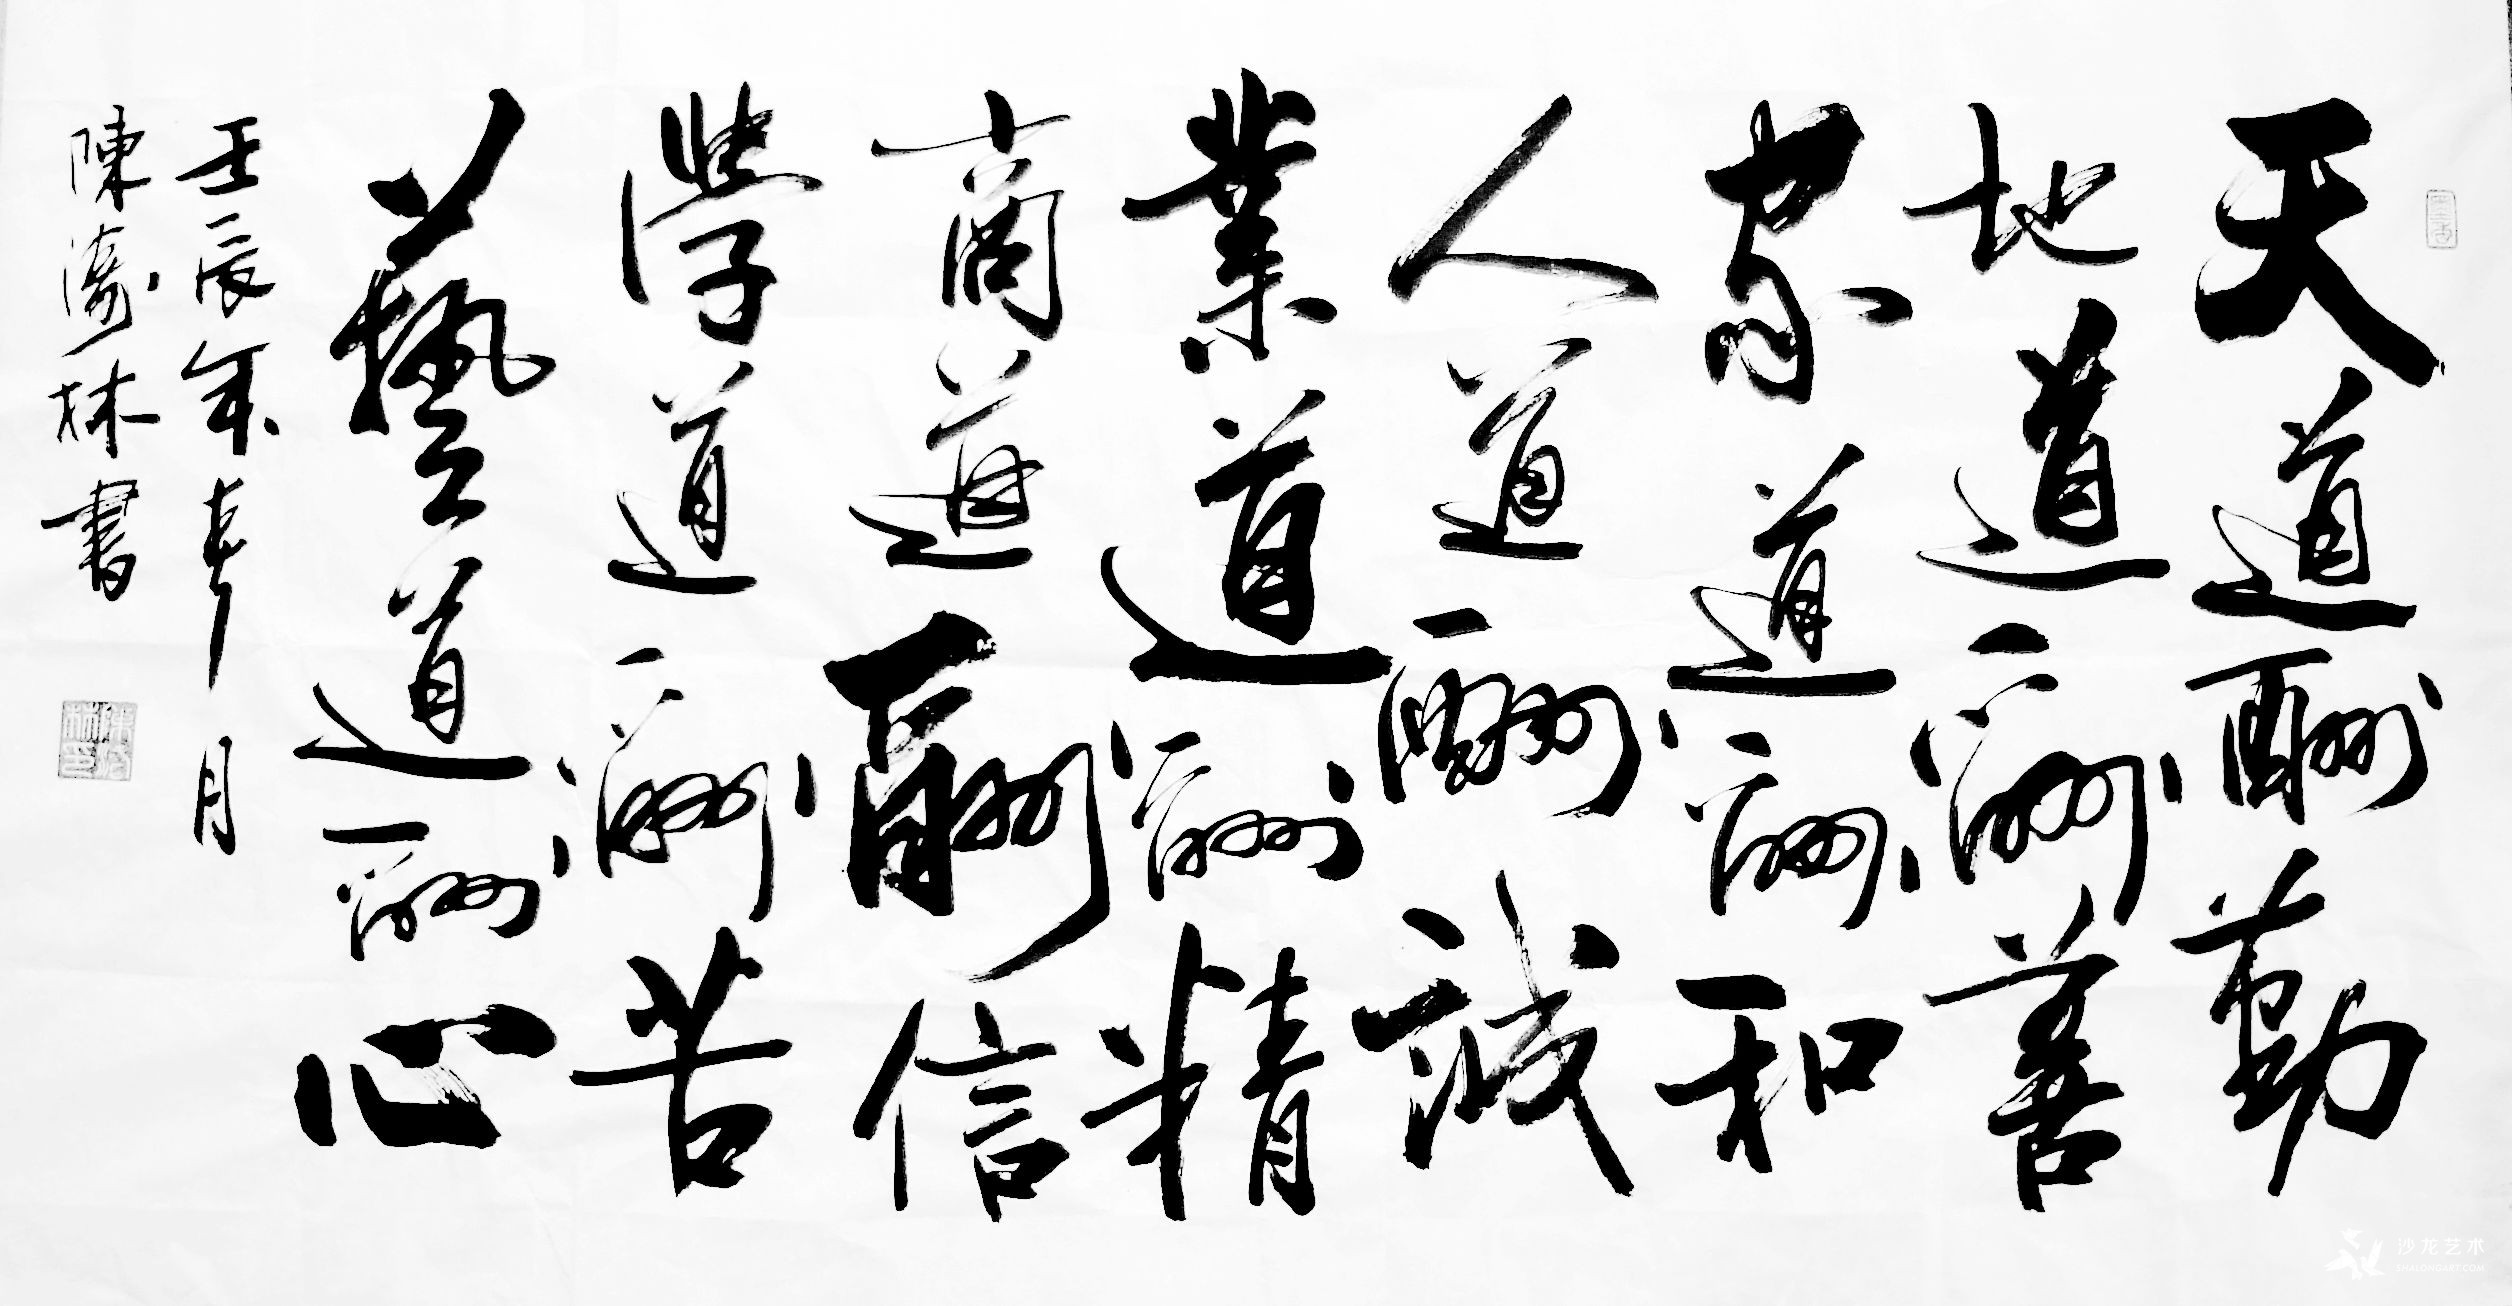 天道酬勤
地道酬善
家道酬和
人道酬誠
業道酬精
商道酬信
學道酬苦
藝道酬心
壬辰年春月
陳濤林書
沙龙艺术
SHALONGART.COM